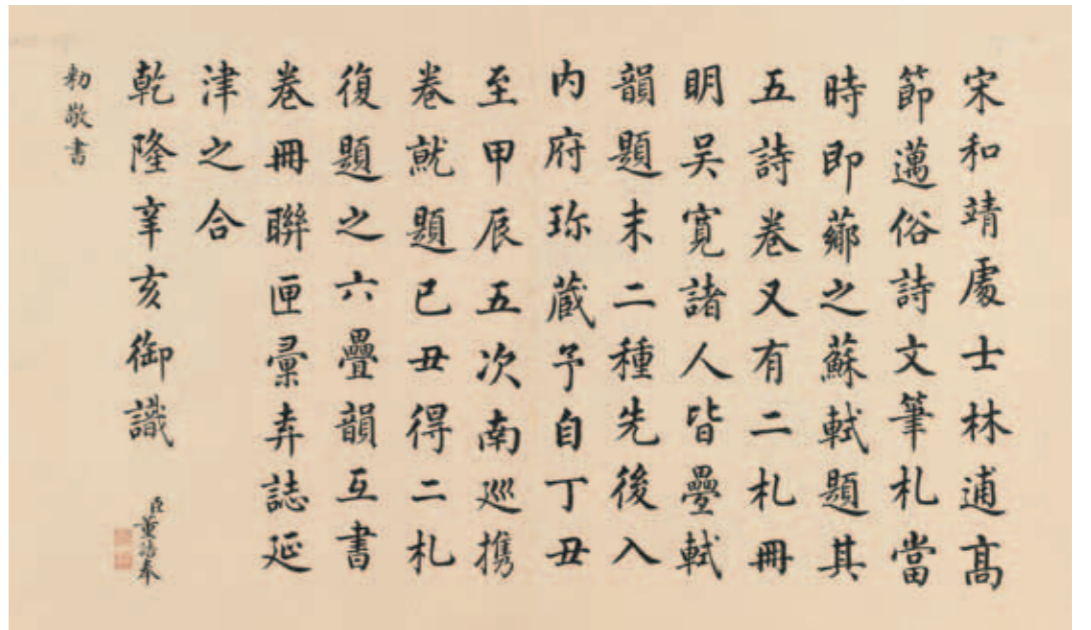 宋和靖處士林逋高
節邁俗詩文筆札當
時即薌之蘇軾題其
五詩卷又有二札冊
明吴寬諸人皆疊軾
韻題末二種先後入
内府珎蔵予自丁丑
至甲辰五次南巡携
卷就題已丑得二札
復題之六疊韻互書
卷冊聨匣彚弆誌延
津之合
乾隆辛亥御識
臣董誥奉
勅敬書